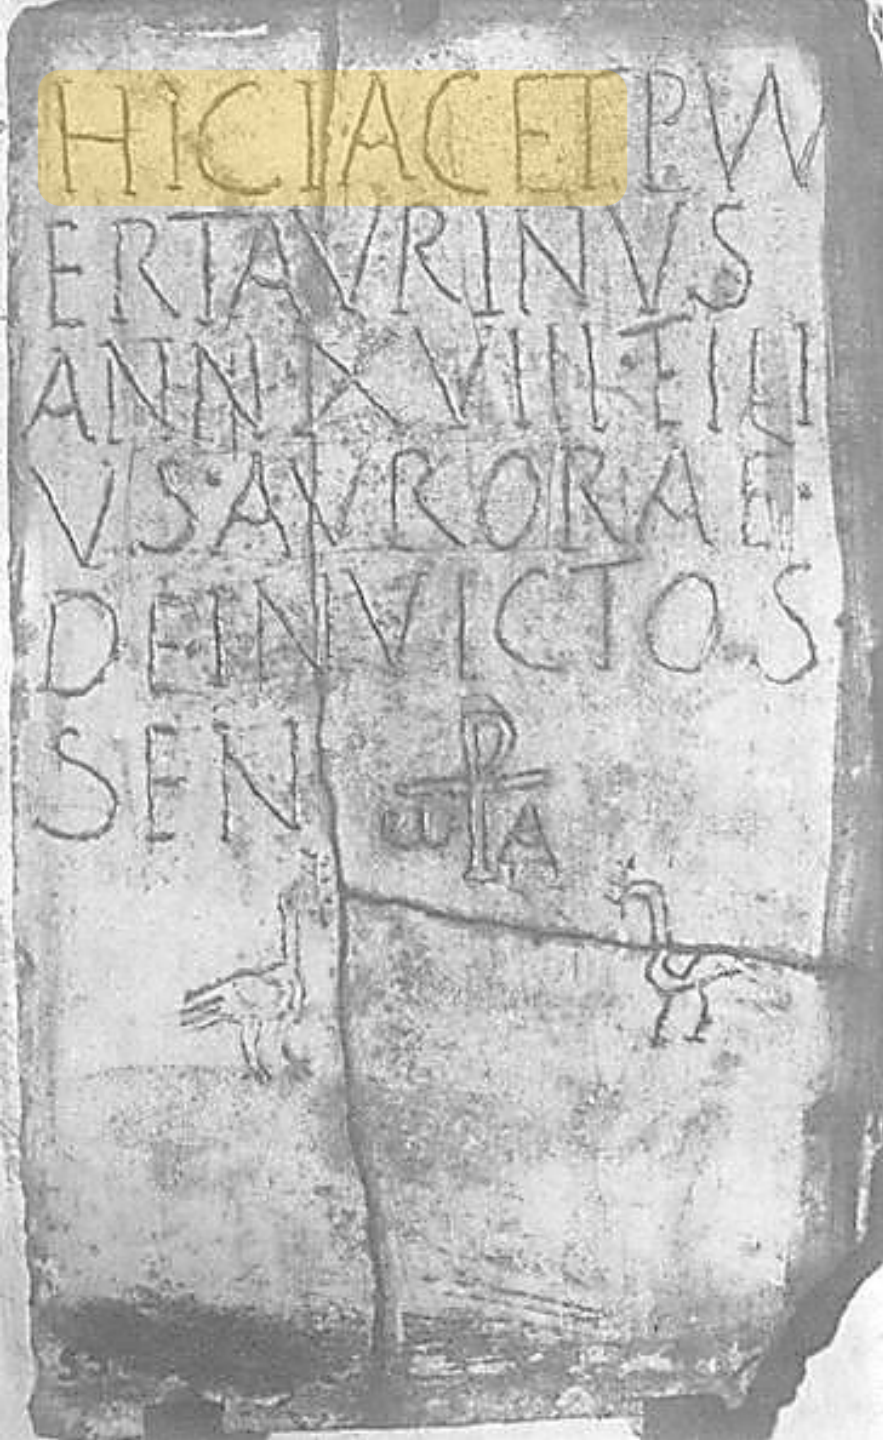 HICIACETPVV
ERTAVRINVS
ANNXVIII·ETIII
VS·AVRORAE·
DEINVICTOS
SEN
ω⳨A